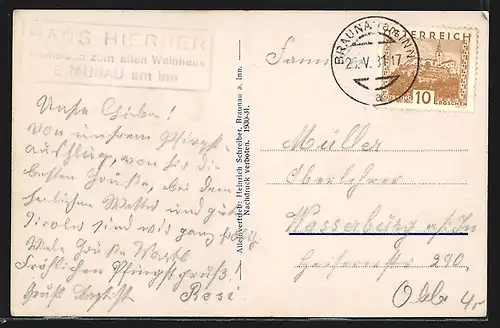 HANS HIERHER
zum alten Weinhaus
BRAUNAU am Inn
Unsre Lieben!
Von unserem Pfingst-
ausflug, von hir die
besten Grüße, bei dem
herlichen Wetter und gute
Tiroler sind wir ganz
Viele Grüße
Fröhlichen Pfingstgruß!
Gruß Resi
Alleinvertrieb: Heinrich Schreiber, Braunau a. Inn.
Nachdruck verboten. 1930-31.
BRAUNAU am INN
25.V.31.17
a
ÖSTERREICH
10 GROSCHEN
Fam.
Müller
Oberlehrer
Wasserburg a/Inn
290.
Obb.